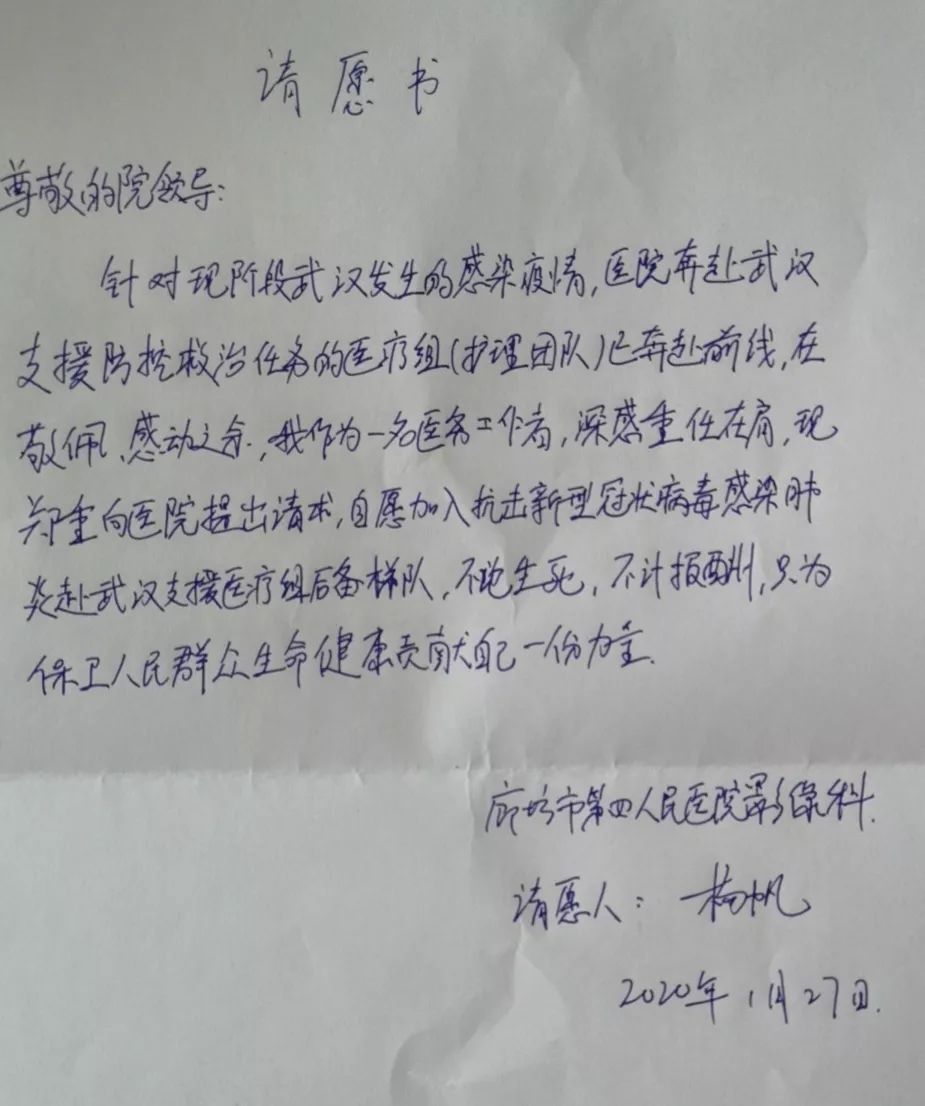 请愿书
尊敬的院领导:
针对现阶段武汉发生的感染疫情,医院奔赴武汉
支援防控救治任务的医疗组(护理团队)已奔赴前线,在
敬佩、感动之余,我作为一名医务工作者,深感重任在肩,现
郑重向医院提出请求,自愿加入抗击新型冠状病毒感染肺
炎赴武汉支援医疗组后备梯队,不论生死,不计报酬,只为
保卫人民群众生命健康贡献自己一份力量.
廊坊市第四人民医院影像科.
请愿人: 杨帆
2020年1月27日.